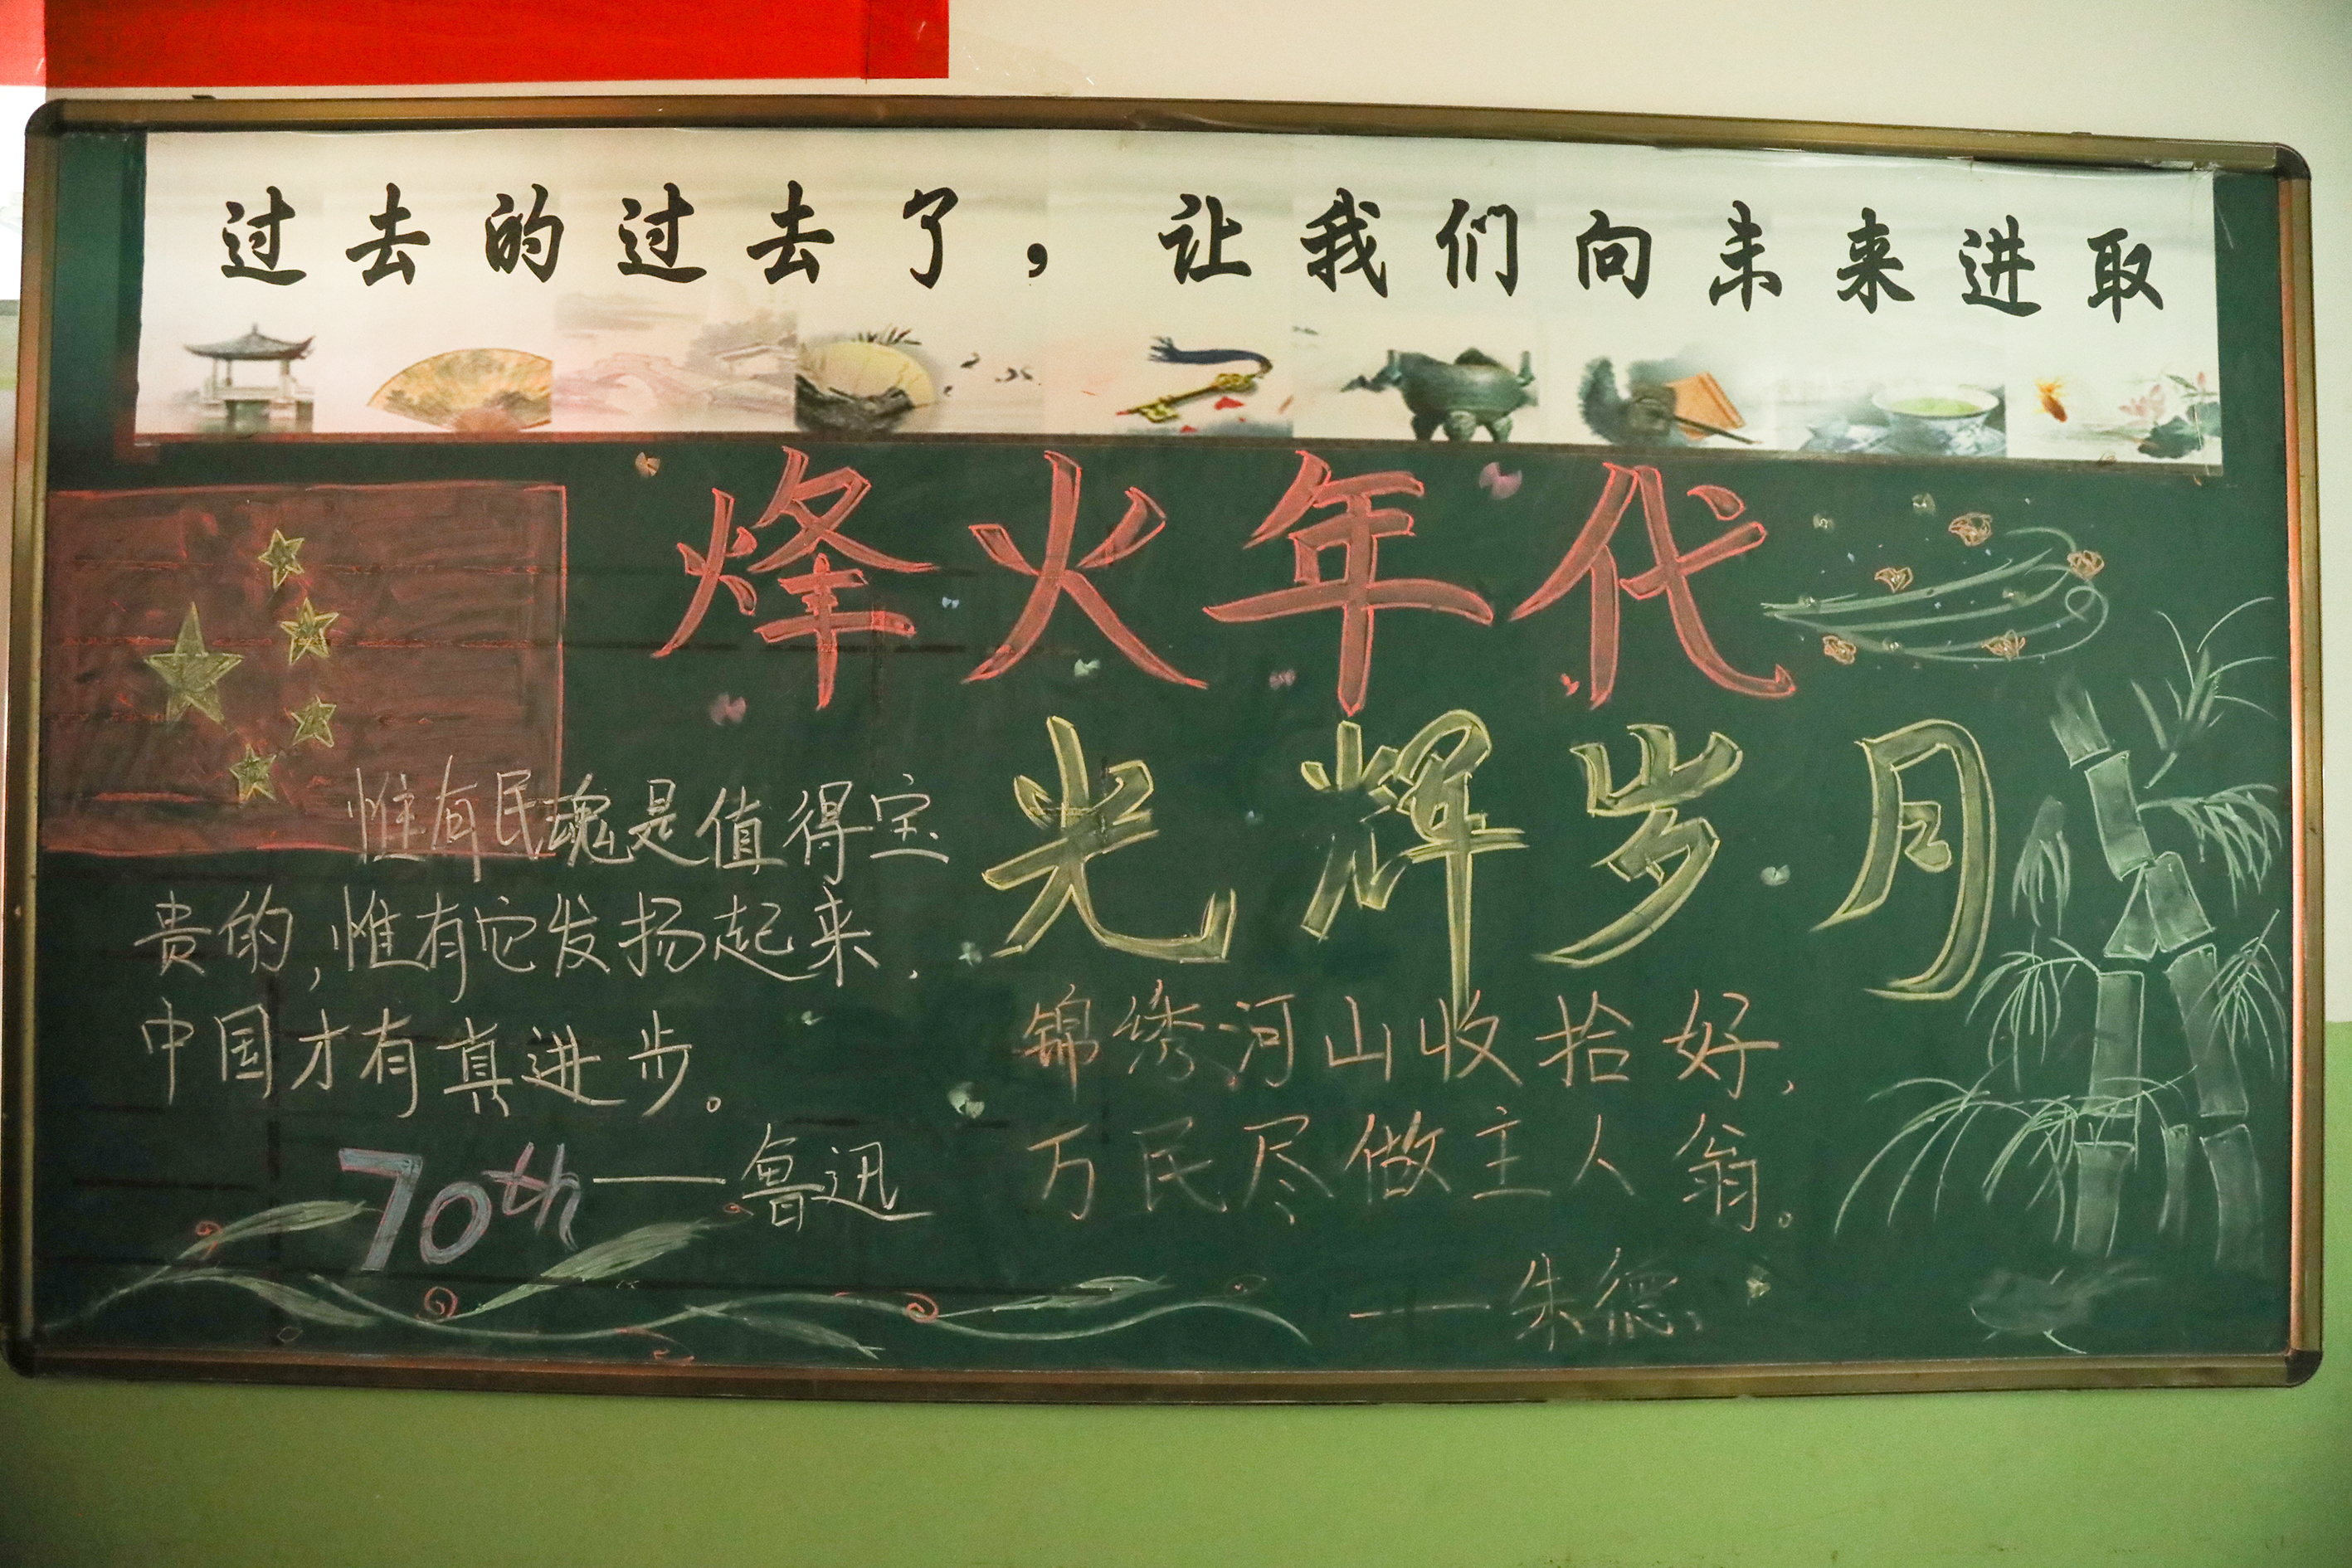 过去的过去了，让我们向未来进取
烽火年代
光辉岁月
惟有民魂是值得宝
贵的，惟有它发扬起来，
中国才有真进步。
——鲁迅
70th
锦绣河山收拾好，
万民尽做主人翁。
——朱德